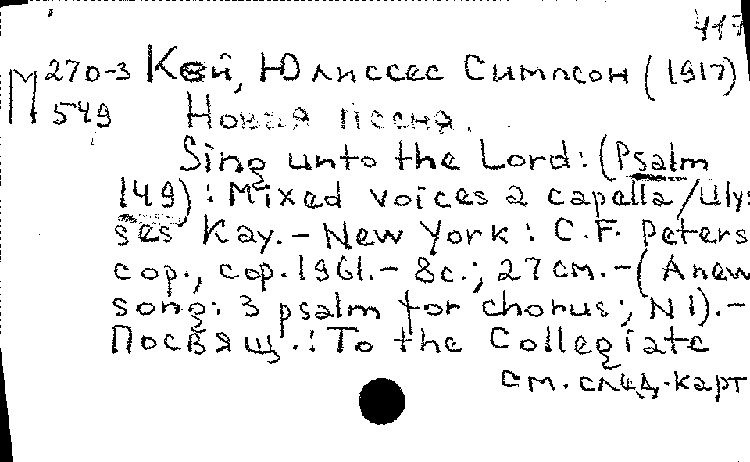 417
М 270-3 Кей, Юлиссес Симпсон (1917)
549 Новая песня.
Sing unto the Lord: (Psalm
149): Mixed voices a capella / Ulys
ses Kay. - New York: C.F. Peters
cop., cop. 1961. - 8с.; 27см. - (A new
song: 3 psalm for chorus; N1). -
Посвящ.: To the Collegiate
см. след. карт